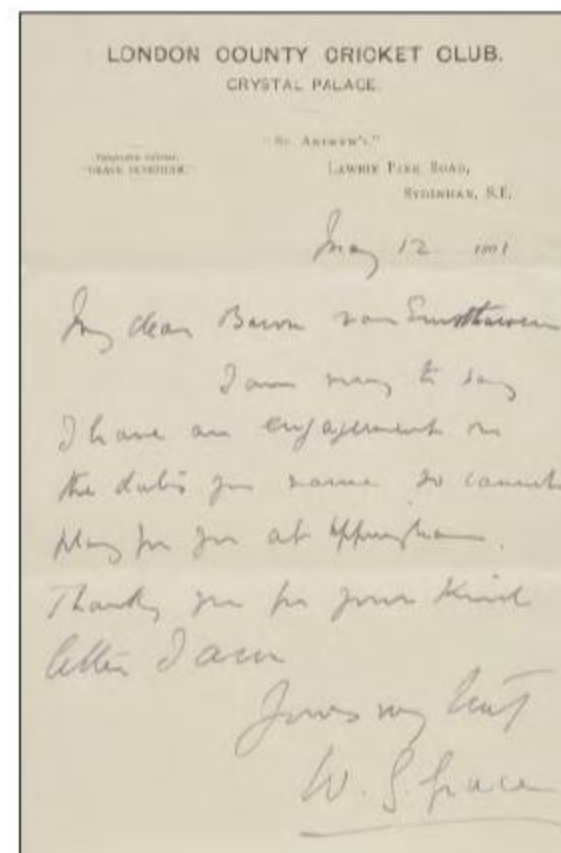 LONDON COUNTY CRICKET CLUB.
CRYSTAL PALACE.
"St. Andrew's,"
Lawrie Park Road,
Sydenham, S.E.
May 12 1901
My dear Baron von
I am sorry to say
I have an engagement on
the dates you name so cannot
play for you at Uppingham.
Thanking you for your kind
letter I am
Yours very truly
W. G. Grace